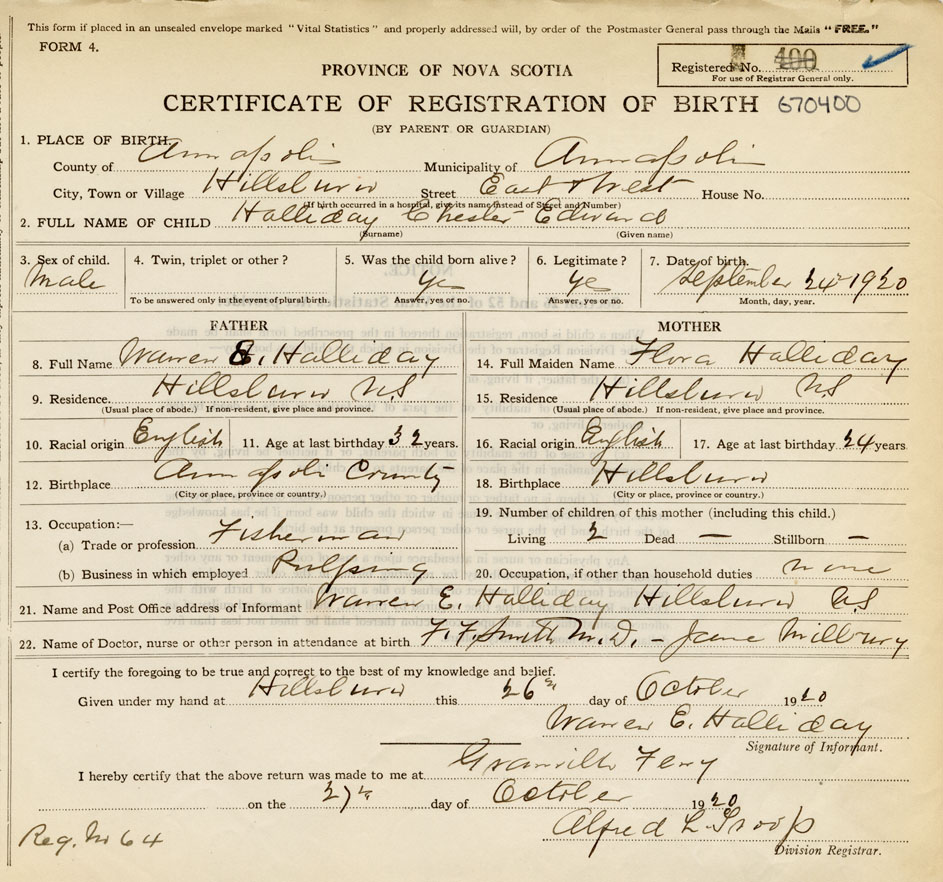 This form if placed in an unsealed envelope marked "Vital Statistics" and properly addressed will, by order of the Postmaster General pass through the Mails "FREE."
FORM 4.
Registered No. 400
For use of Registrar General only.
PROVINCE OF NOVA SCOTIA
CERTIFICATE OF REGISTRATION OF BIRTH 670400
(BY PARENT OR GUARDIAN)
1. PLACE OF BIRTH.
County of Annapolis Municipality of Annapolis
City, Town or Village Hillsburn Street East & West House No.
(If birth occurred in a hospital, give its name instead of Street and Number)
2. FULL NAME OF CHILD Halliday Chester Edward
(Surname) (Given name)
3. Sex of child. 4. Twin, triplet or other? 5. Was the child born alive? 6. Legitimate? 7. Date of birth.
Male yes yes September 24th 1920
To be answered only in the event of plural birth. Answer, yes or no. Answer, yes or no. Month, day, year.
FATHER MOTHER
8. Full Name Warren E. Halliday 14. Full Maiden Name Flora Halliday
9. Residence. Hillsburn N.S 15. Residence Hillsburn N.S
(Usual place of abode.) If non-resident, give place and province. (Usual place of abode.) If non-resident, give place and province.
10. Racial origin English 11. Age at last birthday 32 years. 16. Racial origin English 17. Age at last birthday 24 years
12. Birthplace Annapolis County 18. Birthplace Hillsburn
(City or place, province or country.) (City or place, province or country.)
13. Occupation:— 19. Number of children of this mother (including this child.)
(a) Trade or profession Fisherman Living 2 Dead — Stillborn —
(b) Business in which employed 20. Occupation, if other than household duties none
21. Name and Post Office address of Informant Warren E. Halliday Hillsburn N.S
22. Name of Doctor, nurse or other person in attendance at birth F. F. Smith M.D. – Jane Milbury
I certify the foregoing to be true and correct to the best of my knowledge and belief.
Given under my hand at Hillsburn this 26th day of October 1920
Warren E. Halliday
Signature of Informant.
I hereby certify that the above return was made to me at Granville Ferry
on the 27th day of October 1920
Alfred L. Troop
Division Registrar.
Reg. No 64